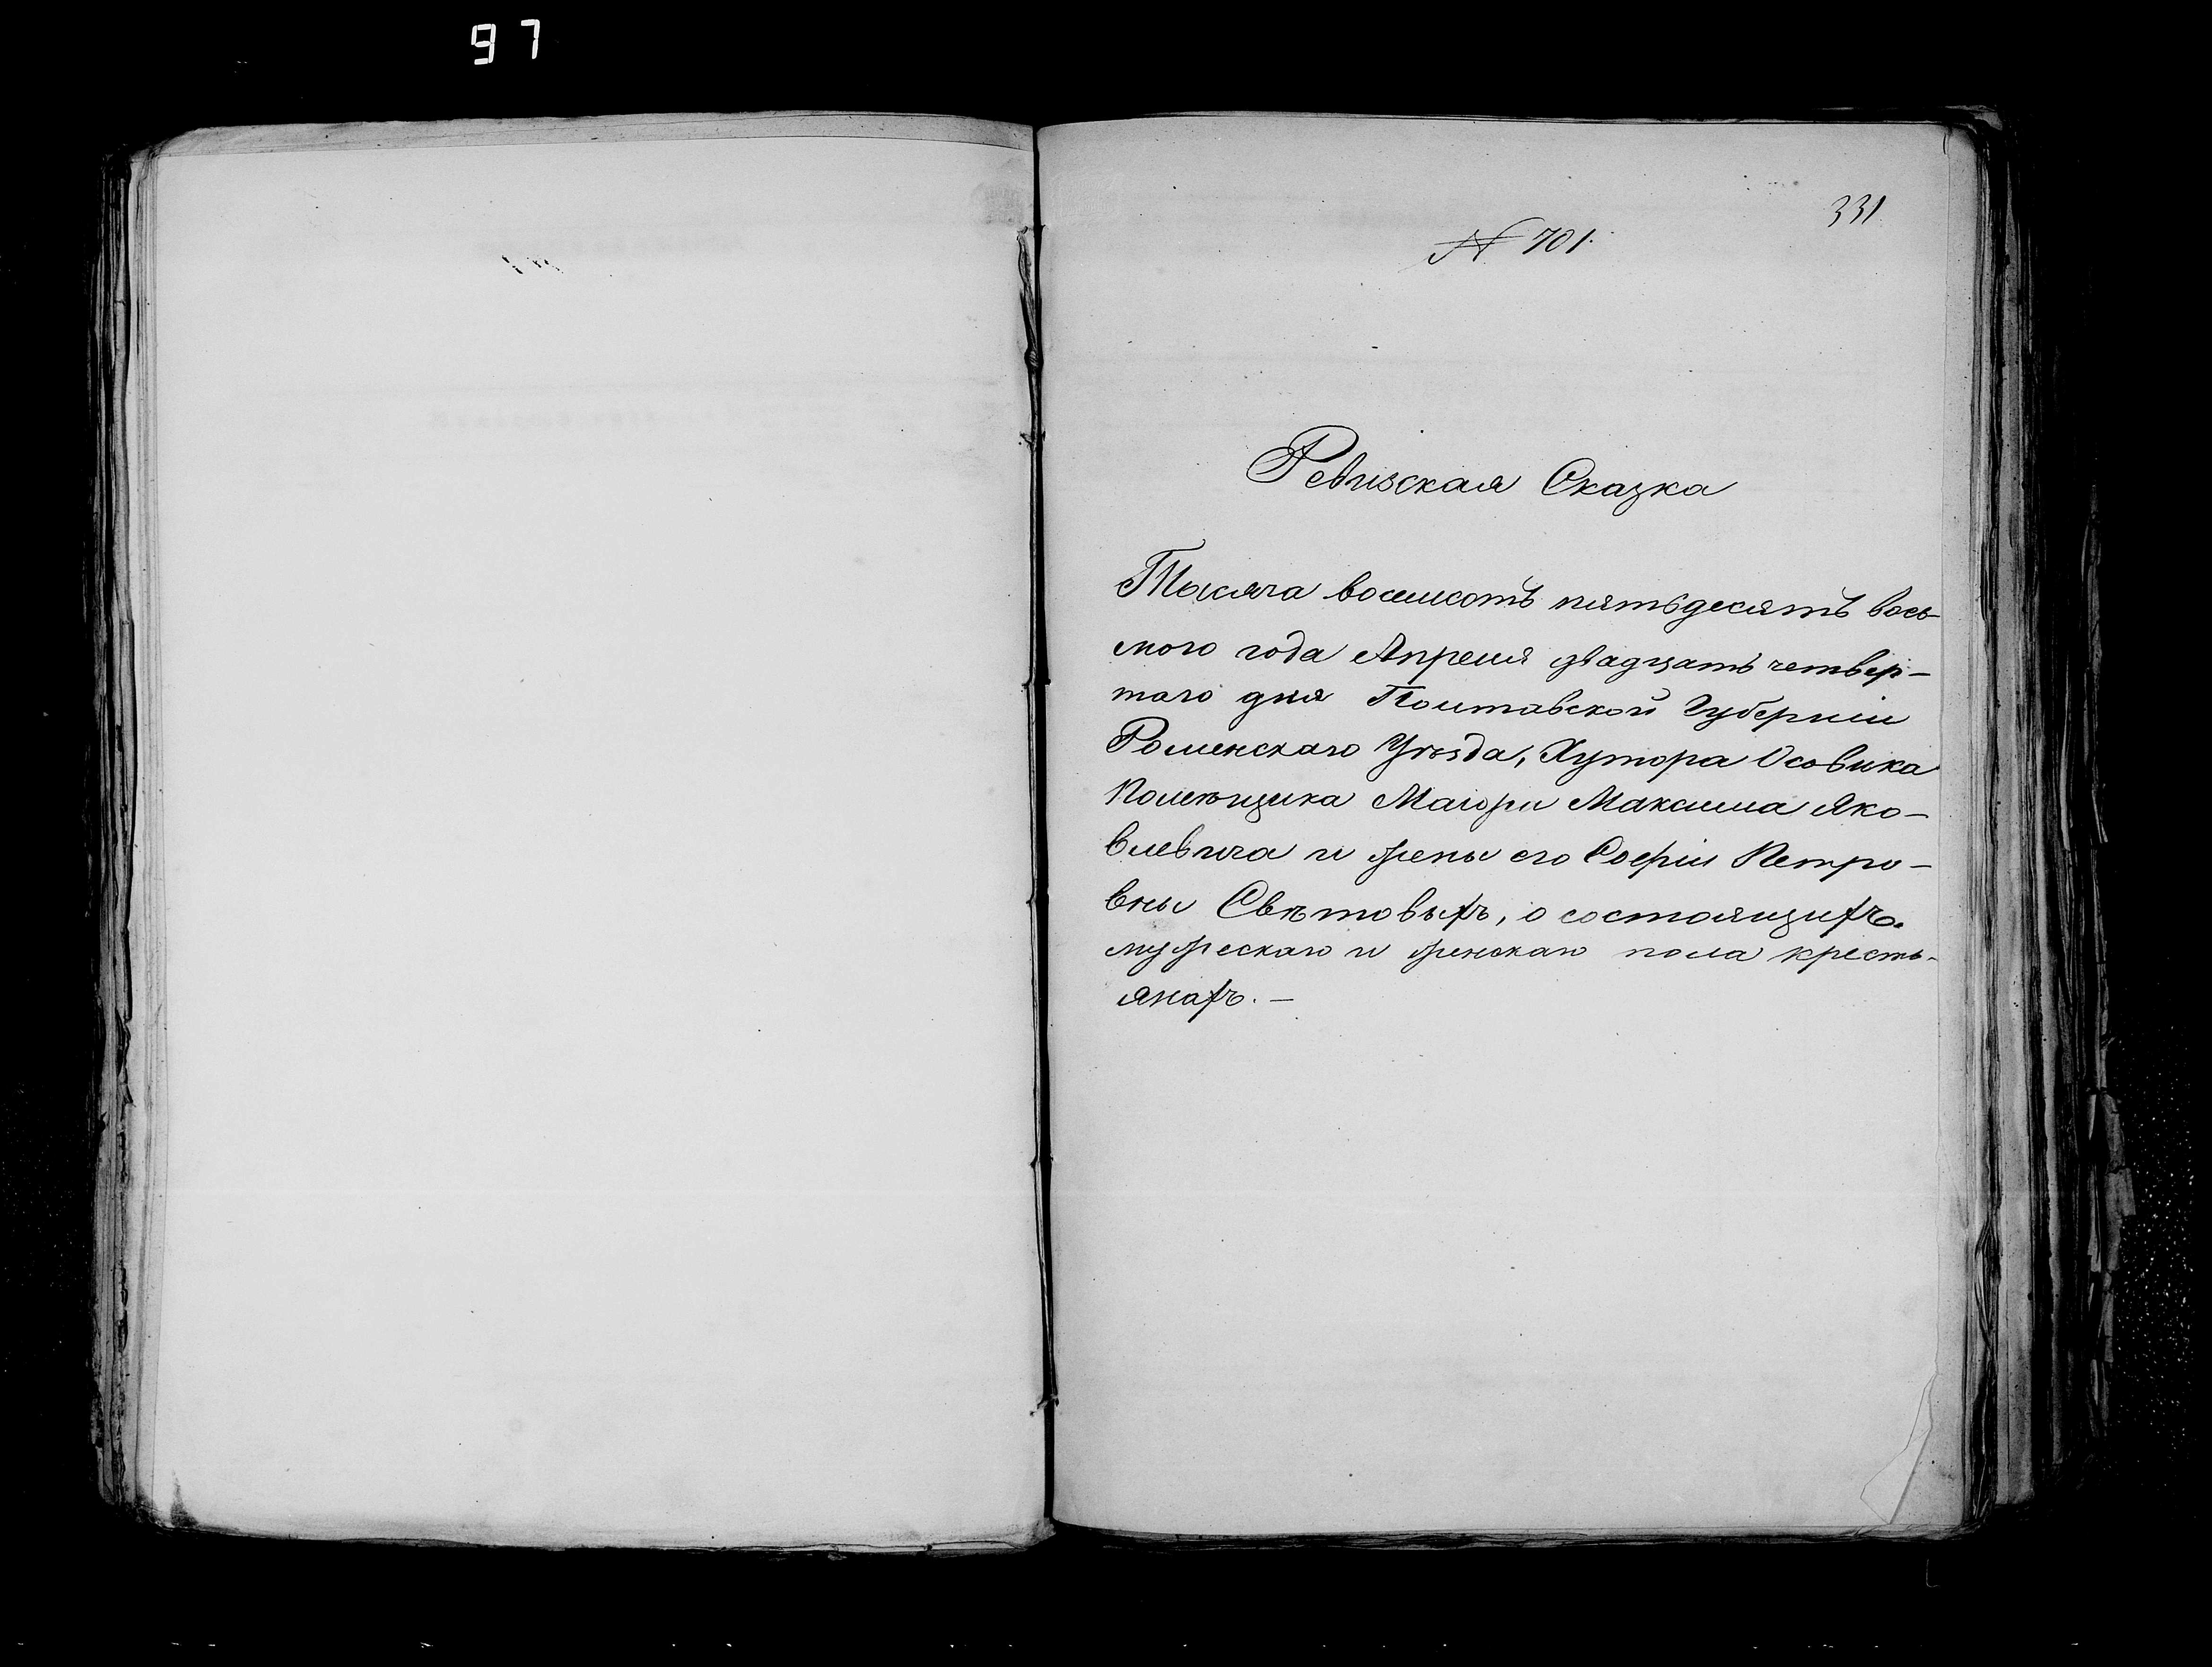 97
331
№ 701.
Ревизская Сказка
Тысяча восемсотъ пятьдесятъ вось-
мого года Апреля двадцать четвер-
того дня Полтавской Губерніи
Роменскаго Уѣзда, Хутора Осовика
Помѣщика Маіора Максима Яко-
влевича и жены его Софіи Петро-
вны Свѣтовыхъ, о состоящихъ
мужескаго и женскаго пола кресть-
янахъ. —